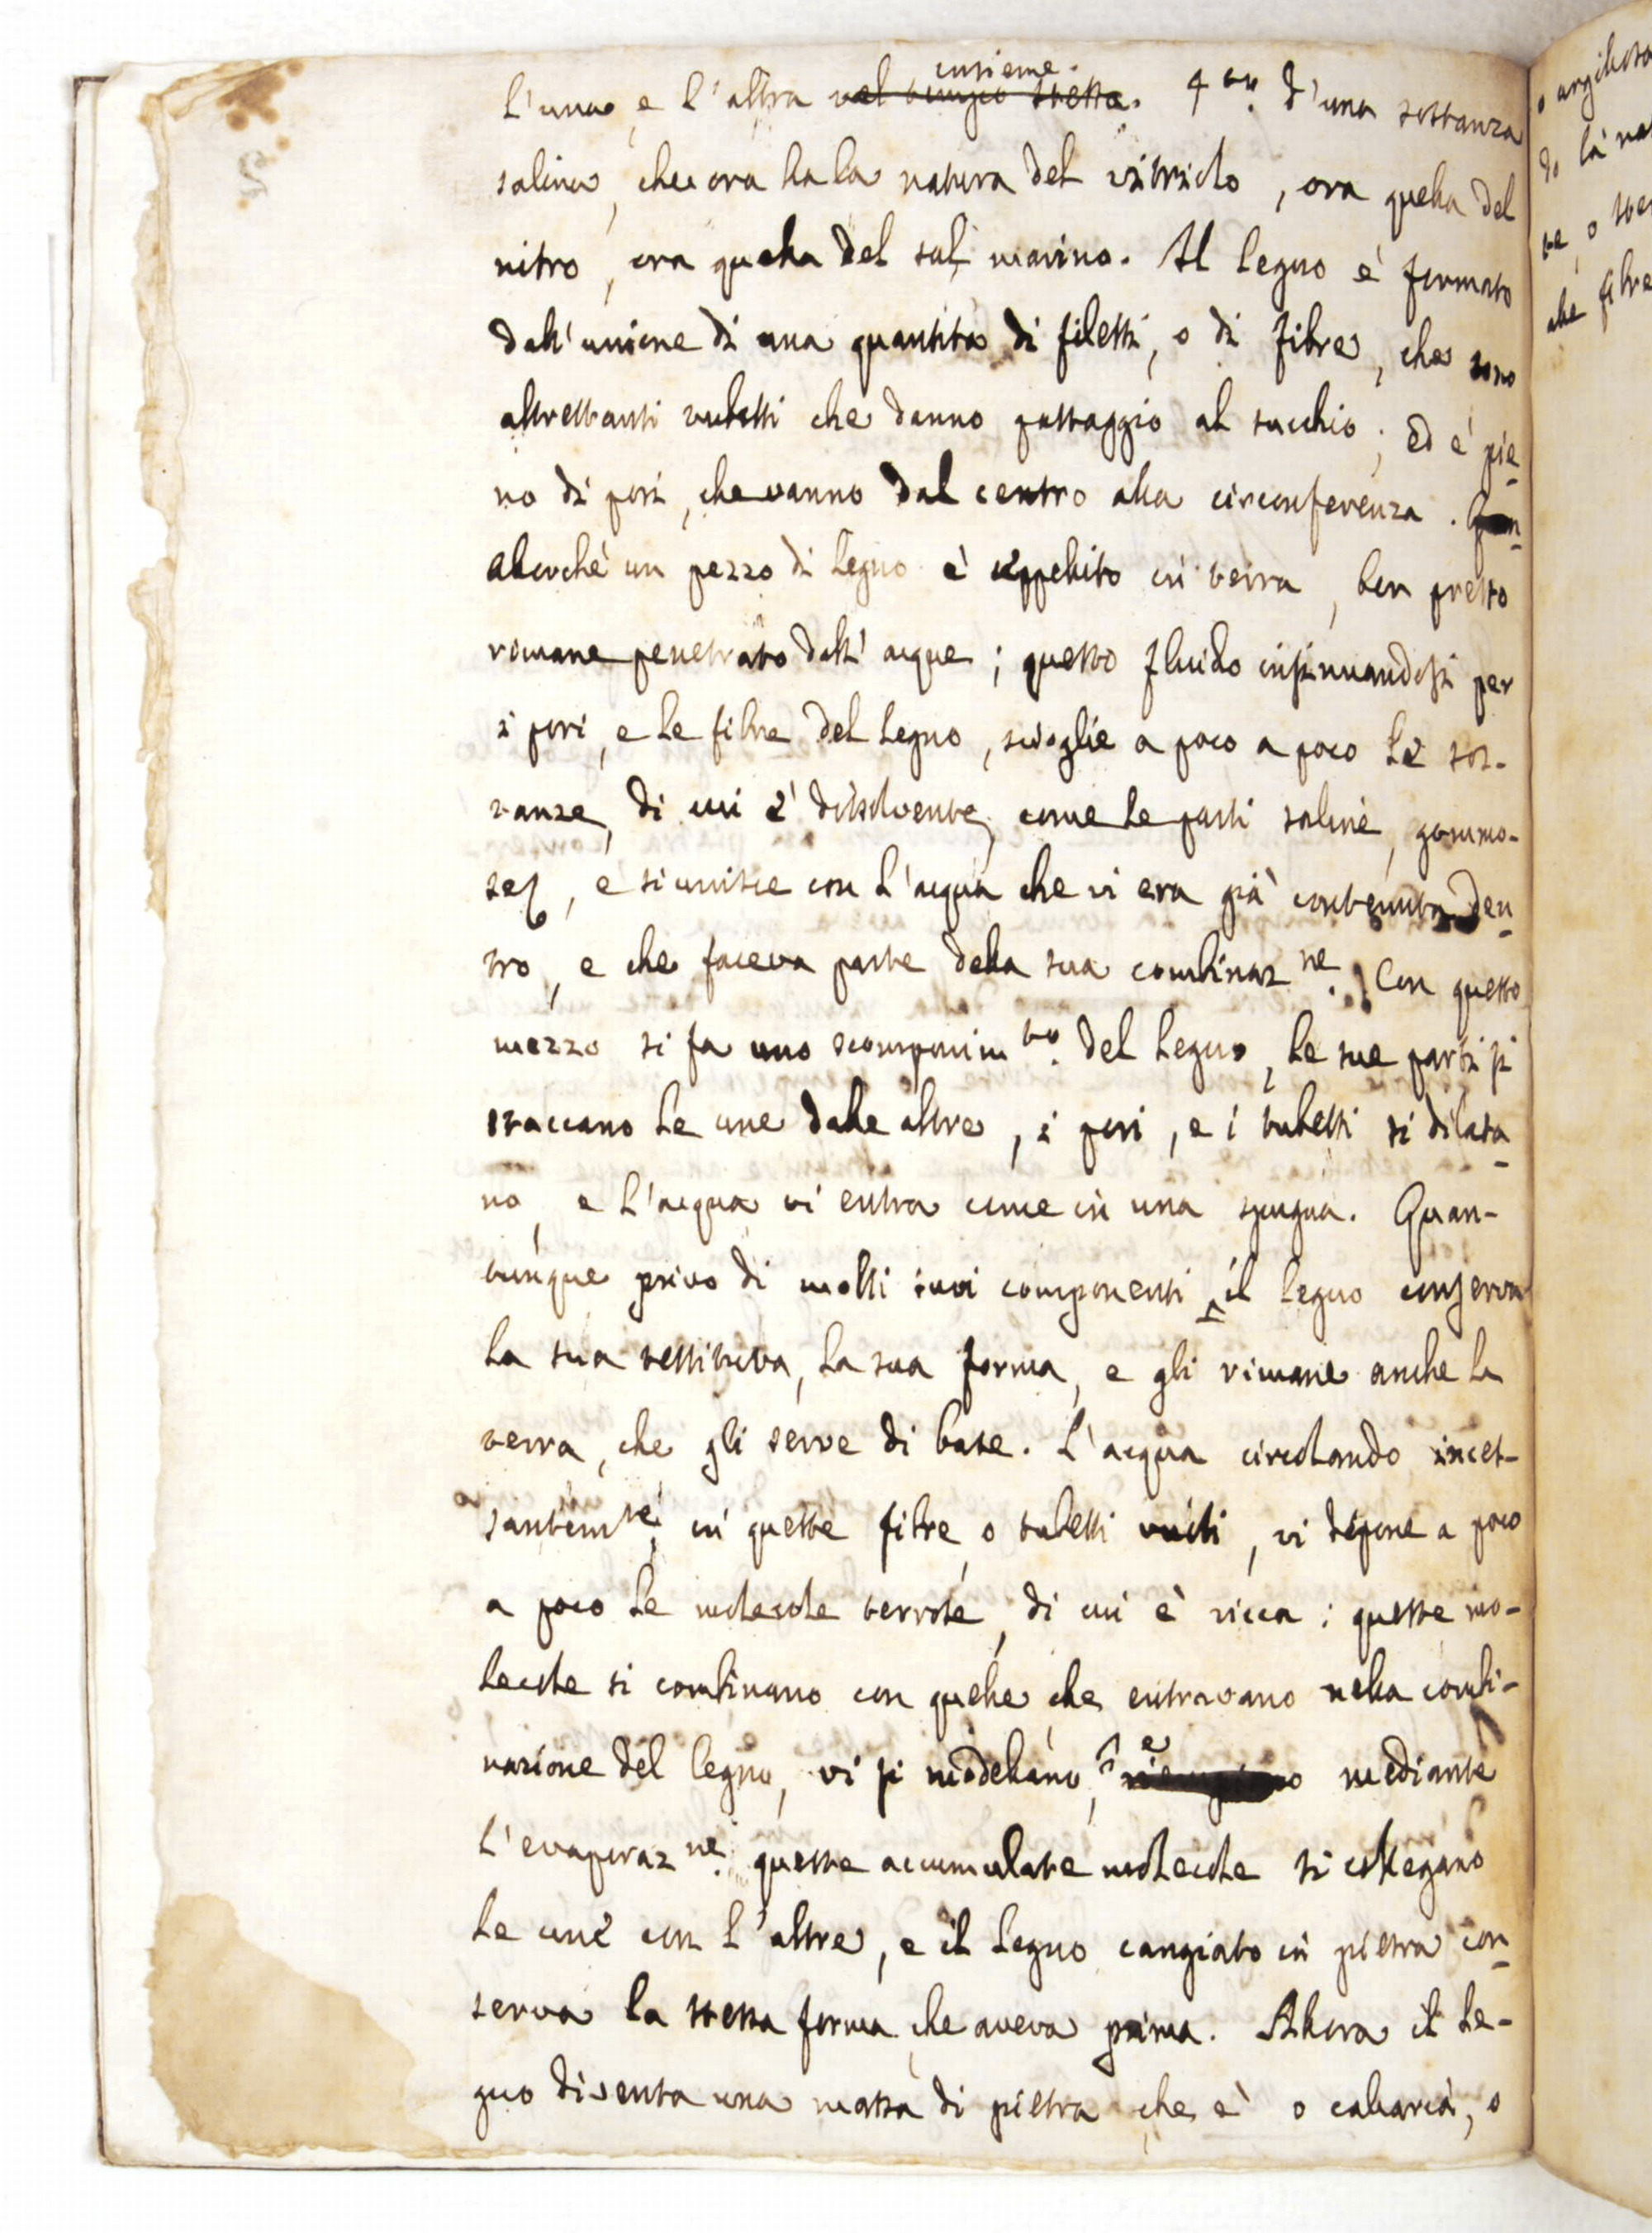 insieme.
l'una, e l'altra nel tempo stesso. 4to. d'una sostanza
salina, che ora ha la natura del vitriolo, ora quella del
nitro, ora quella del sal marino. Il legno è formato
dall'unione di una quantità di filetti, o di fibre, che sono
altrettanti tubetti che danno passaggio al succhio; ed è pie-
no di pori, che vanno dal centro alla circonferenza.
Allorchè un pezzo di legno è seppellito in terra, ben presto
rimane penetrato dall'acque; questo fluido insinuandosi per
i pori, e le fibre del legno, scioglie a poco a poco le sos-
tanze, di cui è dissolvente, come le parti saline, gommo-
se, e si unisce con l'acqua che vi era già contenuta den-
tro, e che faceva parte della sua combinazne. Con questo
mezzo si fa uno scomponimto. del legno, le sue parti si
staccano le une dalle altre, i pori, e i tubetti si dilata-
no, e l'acqua vi entra come in una spugna. Quan-
tunque privo di molti suoi componenti, il legno conserva
la sua tessitura, la sua forma, e gli rimane anche la
terra, che gli serve di base. L'acqua circolando inces-
santemte, in queste fibre, o tubetti vuoti, vi depone a poco
a poco le molecole terrose, di cui è ricca: queste mo-
lecole si combinano con quelle che entravano nella combi-
nazione del legno, vi si modellano, e mediante
l'evaporazne. queste accumulate molecole si collegano
le une con l'altre, e il legno cangiato in pietra con-
serva la stessa forma che aveva prima. Allora il le-
gno diventa una massa di pietra che è o calcarea, o
o argillosa